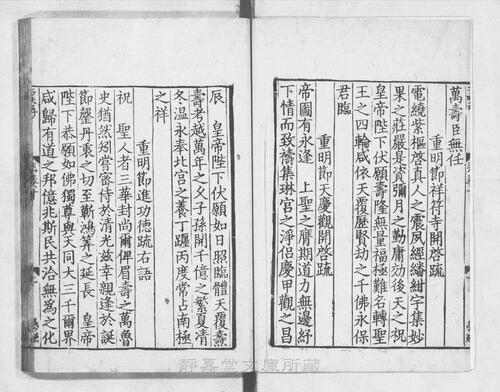 萬壽臣無任
重明節祥符寺開啓疏
電繞紫樞啓真人之震夙經繙紺宇集妙
果之莊嚴是資彌月之勤庸効後天之祝
皇帝陛下伏願壽隆無量福極難名轉聖
王之四輪咸依天覆歷賢劫之千佛永保
君臨
重明節天慶觀開啓疏
帝圖有永逢 上聖之膺期道力無邊紓
下情而致禱集琳宮之淨侣慶甲觀之昌
辰 皇帝陛下伏願如日照臨體天覆燾
壽考越萬年之久子孫開千億之繁夏凊
冬温永奉北宫之養丁躔丙度常占南極
之祥
重明節進功德疏右語
祝 聖人者三華封尚爾俾眉壽之萬魯
史猶然矧當密侍於清光兹幸親逢於誕
節罄丹衷之切至蘄鴻筭之延長 皇帝
陛下恭願如佛獨尊與天同大三千爾界
咸歸有道之邦億兆斯民共洽無爲之化
靜嘉堂文庫所藏